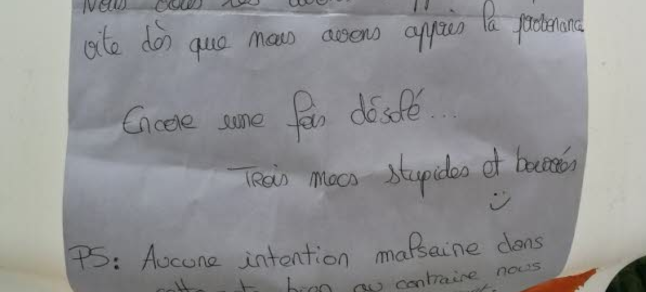 Nous vous les
vite dès que nous avons appris la provenance
Encore une fois désolé...
Trois mecs stupides et bourrés
:)
PS: Aucune intention malsaine dans
bien au contraire nous